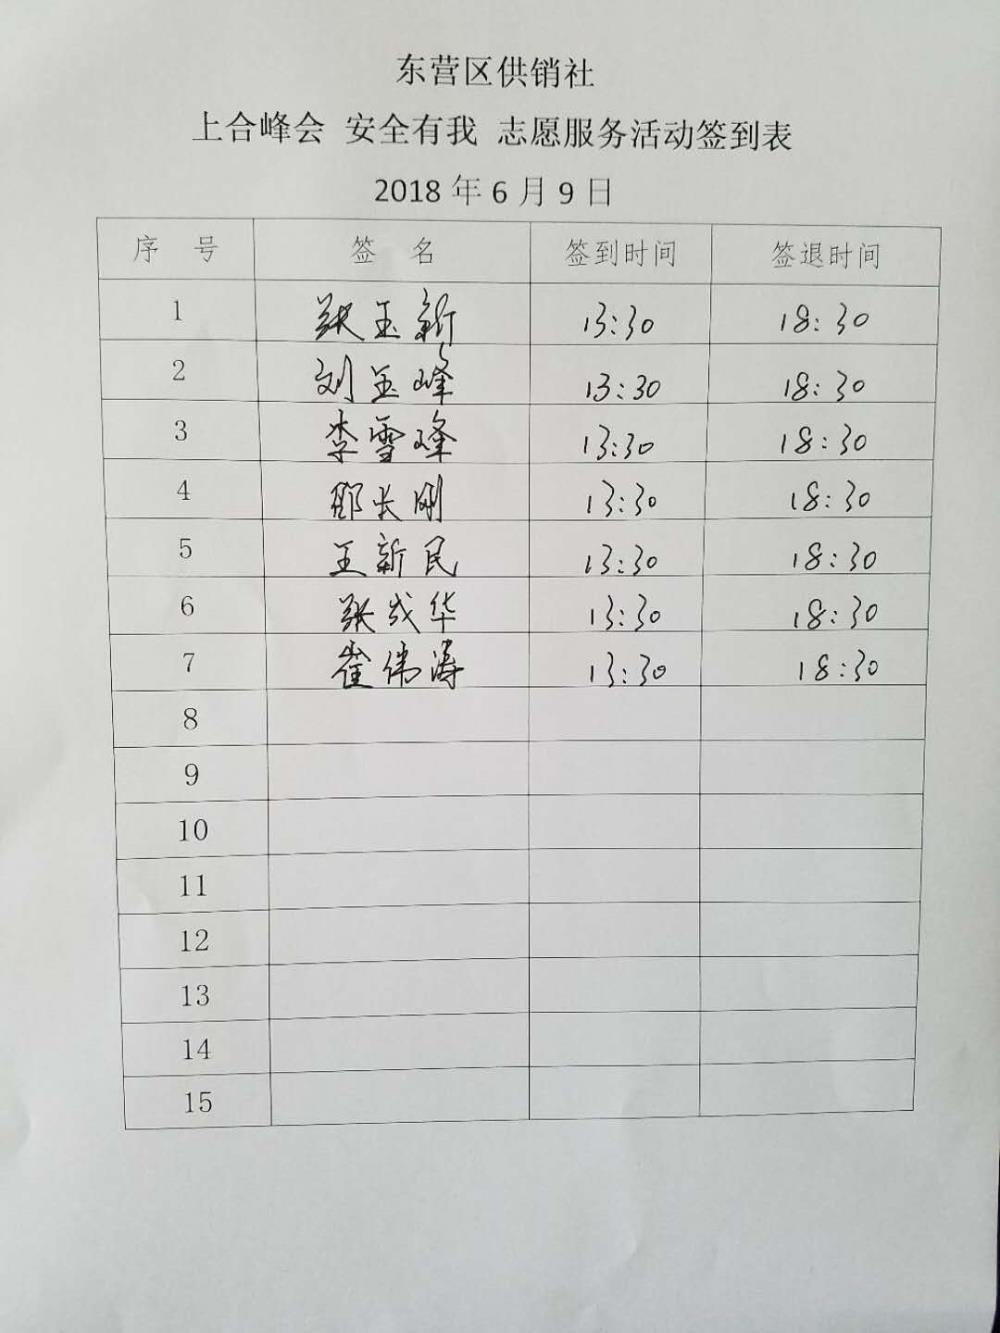 东营区供销社
上合峰会 安全有我 志愿服务活动签到表
2018 年 6 月 9 日
序 号 签 名 签到时间 签退时间
1 张玉新 13:30 18:30
2 刘玉峰 13:30 18:30
3 李雪峰 13:30 18:30
4 邵长刚 13:30 18:30
5 王新民 13:30 18:30
6 张成华 13:30 18:30
7 崔伟涛 13:30 18:30
8
9
10
11
12
13
14
15